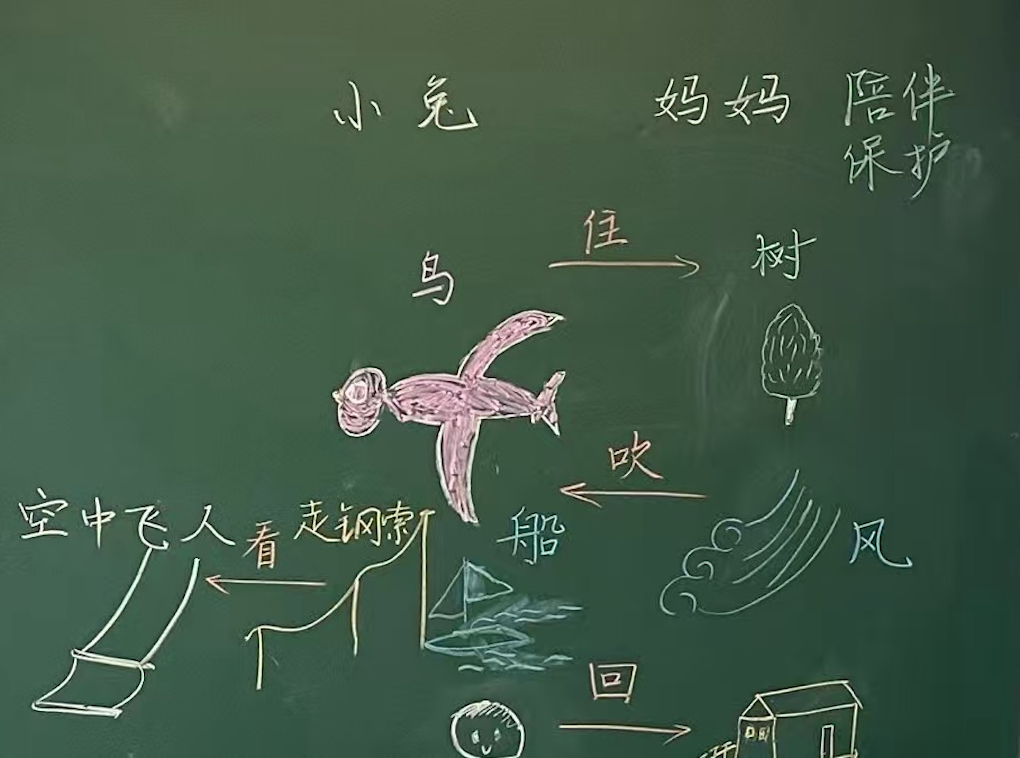 小兔 妈妈 陪伴
保护
住
鸟 树
吹
空中飞人 看 走钢索 船 风
回